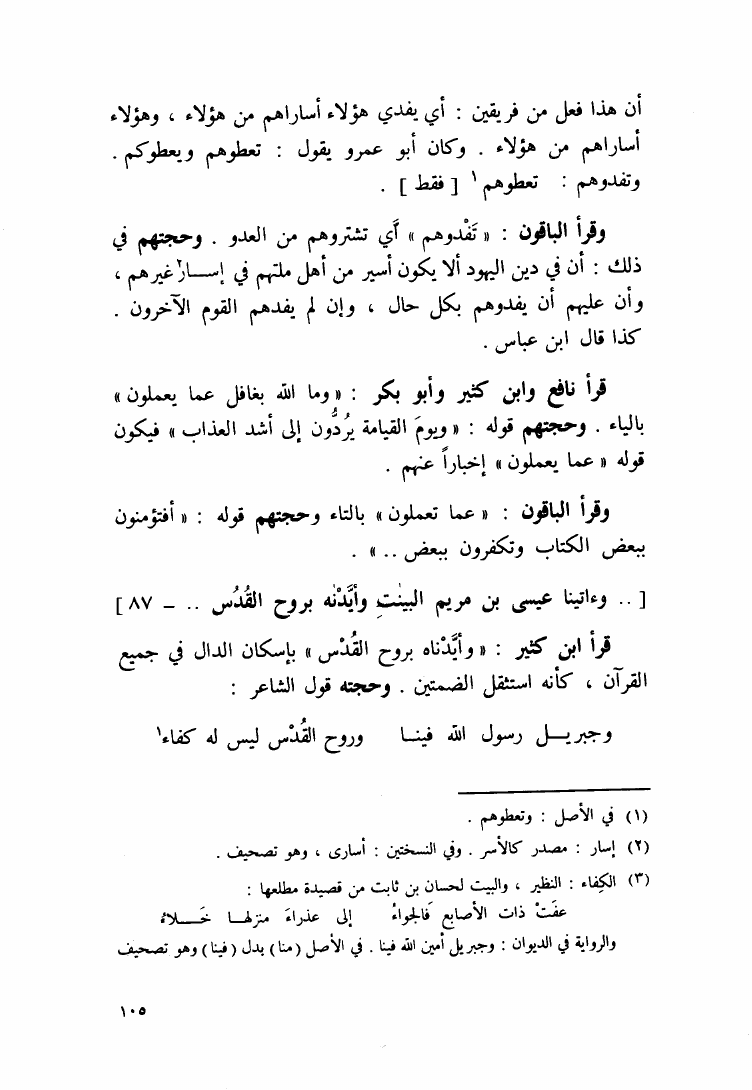 أن هذا فعل من فريقين : أي يفدي هؤلاء أساراهم من هؤلاء ، وهؤلاء
أساراهم من هؤلاء . وكان أبو عمرو يقول : تعطوهم ويعطوكم .
وتفدوهم : تعطوهم ١ [ فقط ] .
وقرأ الباقون : « تَفْدوهم » أي تشتروهم من العدو . وحجتهم في
ذلك : أن في دين اليهود ألا يكون أسير من أهل ملتهم في إســار٢ غيرهم ،
وأن عليهم أن يفدوهم بكل حال ، وإن لم يفدهم القوم الآخرون .
كذا قال ابن عباس .
قرأ نافع وابن كثير وأبو بكر : « وما الله بغافل عما يعملون »
بالياء . وحجتهم قوله : « ويومَ القيامة يُردُّون إلى أشد العذاب » فيكون
قوله « عما يعملون » إخباراً عنهم .
وقرأ الباقون : « عما تعملون » بالتاء وحجتهم قوله : « أفتؤمنون
ببعض الكتاب وتكفرون ببعض .. » .
[ .. وءاتينا عيسى بن مريم البينٰتِ وأيَّدْنٰه بروح القُدُس .. – ٨٧ ]
قرأ ابن كثير : « وأيَّدْناه بروح القُدْس » بإسكان الدال في جميع
القرآن ، كأنه استثقل الضمتين . وحجته قول الشاعر :
وجبريــل رسول الله فينــا وروح القُدْس ليس له كفاء١
(١) في الأصل : وتعطوهم .
(٢) إسار : مصدر كالأسر . وفي النسختين : أسارى ، وهو تصحيف .
(٣) الكِفاء : النظير ، والبيت لحسان بن ثابت من قصيدة مطلعها :
عفَتْ ذات الأصابع فَالجواءُ إلى عذراءَ منزلهــا خَـــلاءُ
والرواية في الديوان : وجبريل أمين الله فينا . في الأصل (منا) بدل (فينا) وهو تصحيف
١٠٥